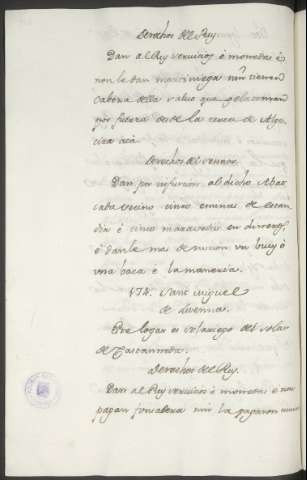 Derechos del Rey
Dan al Rey servicios è monedas è
non le dan martiniega nin tienen
Cabeza della salvo que gela tomaron
por fuerza desde la cerca de Alge-
cira acá.
Derechos del Señor
Dan por infurcion al dicho Abat
cada vecino cinco eminas de
è cinco maravedis en dineros,
è danle mas de nuncion un buey ò
una baca è la mañeria.
172. Sant Miguel
de
Este logar es solariego del solar
de Castañeda.
Derechos del Rey.
Dan al Rey servicios è monedas è non
pagan fonsadera nin la pagaron nunca